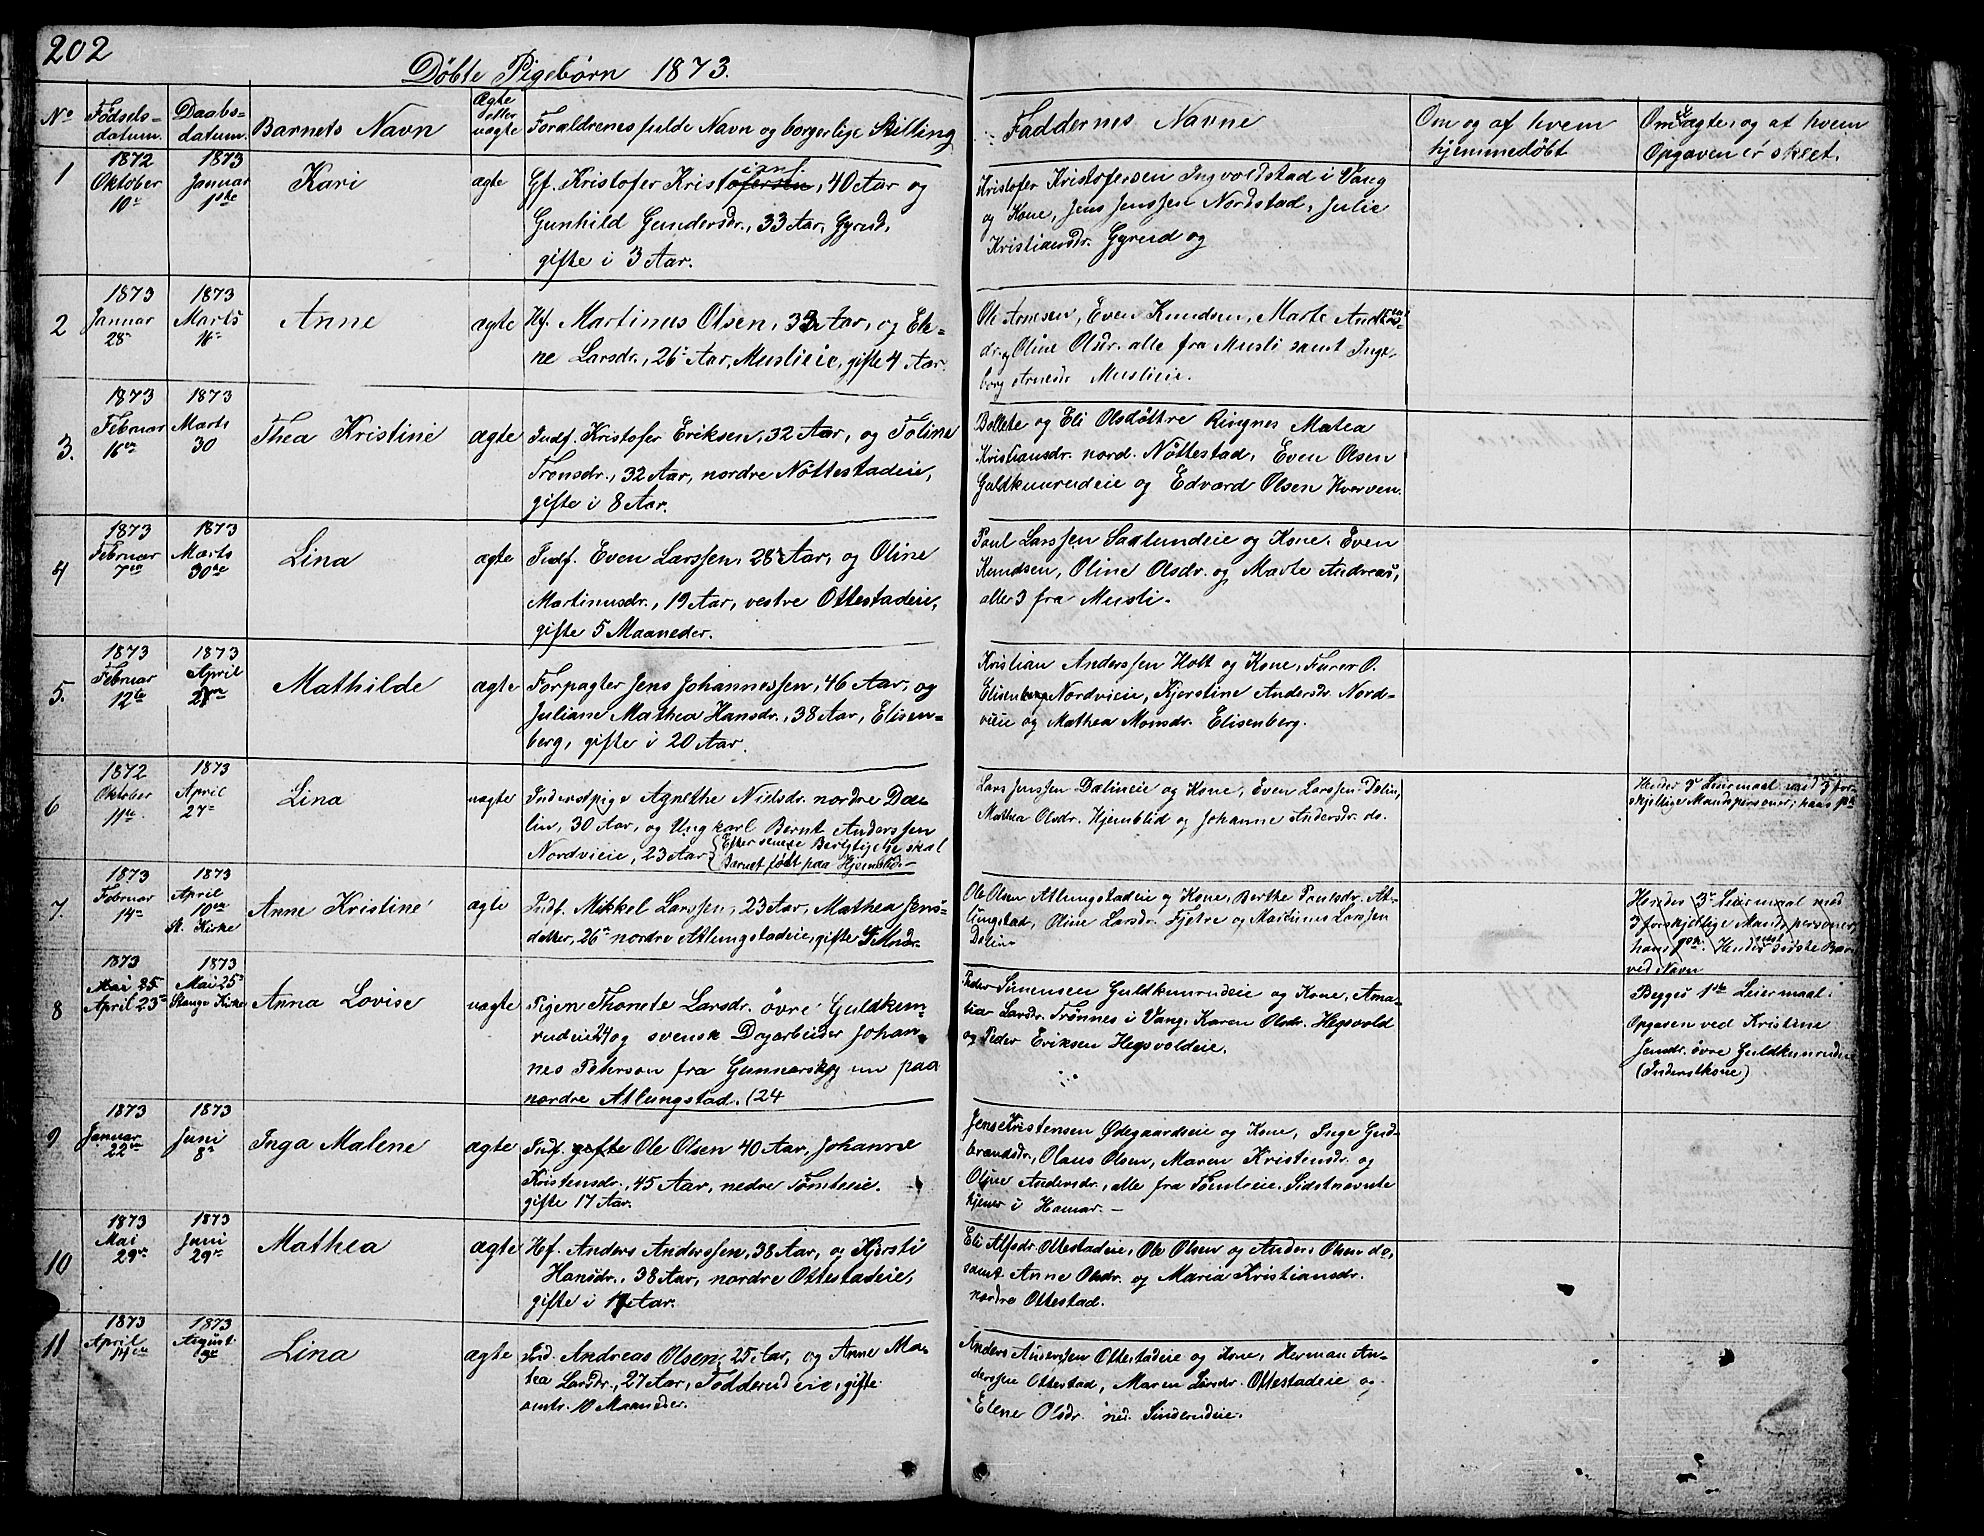 202
Döbte Pigebörn 1873.
No
Födsels-
datum.
Daabs-
datum.
Barnets Navn
Ægte
eller
uægte
Forældrenes fulde Navn og borgerlige Stilling
Faddernes Navne
Om og af hvem
hjemmedöbt
Om uægte, og at hvem
Opgaven er skeet.
1
1872
Oktober
10de
1873
Januar
1ste
Kari
ægte
Gf. Kristofer Kristofersen, 40 Aar og
Gunhild Gundersdr., 33 Aar, Gyrud,
gifte i 3 Aar.
Kristofer Kristofersen Ingvoldstad i Vang
og Kone, Jens Jenssen Nordstad, Julie
Kristiansdr. Gyrud og
2
1873
Januar
28de
1873
Marts
16de
Anne
ægte
Hf. Martinus Olsen, 33 Aar, og Ele-
ne Larsdr., 26 Aar, Muslieie, gifte 4 Aar.
Ole Arnesen, Even Knudsen, Marte Andreas-
dr. og Oline Olsdr. alle fra Musli samt Inge-
borg Arnesdr Muslieie.
3.
1873
Februar
16de
1873
Marts
30
Thea Kristine
ægte
Indf. Kristofer Eriksen, 32 Aar, og Toline
Tronsdr., 32 Aar, nordre Nöttestadeie,
gifte i 8 Aar.
Dollete og Eli Olsdöttre Ringnes Matea
Kristiansdr. nord. Nöttestad, Even Olsen
Guldkunrudeie og Edvard Olsen Kverven.
4
1873
Februar
7de
1873
Marts
30te
Lina
ægte
Indf. Even Larssen, 28 Aar, og Oline
Martinusdr., 19 Aar, vestre Ottestadeie,
gifte 5 Maaneder.
Poul Larssen Saglundeie og Kone, Even
Knudsen, Oline Olsdr. og Marte Andreas,
alle 3 fra Musli.
5.
1873
Februar
12te
1873
April
Mathilde
ægte
Forpagter Jens Johannessen, 46 Aar, og
Juliane Mathea Hansdr., 38 Aar, Elisen-
berg, gifte i 20 Aar.
Kristian Anderssen Holt og Kone, Furer O.
Elisenberg Nordvieie, Kjerstine Andersdr. Nord-
vieie og Mathea Monsdr. Elisenberg.
6
1872
Oktober
11te
1873
April
27de
Lina
uægte
Inderstpige Agnethe Nielsdr. nordre Dæ-
lin, 30 Aar, og Ungkarl Bernt Anderssen
Nordvieie, 23 Aar. (Efter senere Berigtigelse skal
Barnet födt paa Hjemblid.
Lars Jenssen Dælineie og Kone, Even Larssen Dælin,
Mathea Olsdr. Hjemblid og Johanne Andersdr. do.
Hendes 3de Leiermaal med 3 for-
skjellige Mandspersoner; hans 1ste
7.
1873
Februar
14de
1873
April
10de
St. Kirke
Anne Kristine
ægte
Indf. Mikkel Larssen, 23 Aar, Mathea Jens-
datter, 26 nordre Atlungstadeie, gifte Mndr.
Ole Olsen Atlungstadeie og Kone, Berthe Poulsdr. At-
lungstad, Oline Larsdr. Fjetre og Mathinus Larssen
Dælin
Hendes 3de Leiermaal med
3 forskjellige Mandspersoner,
hans 1ste. Hendes sidste Barn
ved Navn
8
1873
Mai 25
April 23de
1873
Mai 25de
Stange Kirke
Anna Lovise
uægte
Pigen Thonete Larsdr. övre Guldkun-
rudeie 24 og svensk Dagarbeider Johan-
nes Peterson fra Gunnarskog nu paa
nordre Atlungstad. (24
Peder Simensen Guldkunrudeie og Kone, Ama-
lia Larsdr. Trönnes i Vang, Karen Olsdr. Hegsvold
og Peder Eriksen Hegsvoldeie.
Begges 1ste Leiermaal
Opgaven ved Kristine
Jensdr. övre Guldkunrudeie
(Inderstkone)
9
1873
Januar
22de
1873
Juni
8de
Inga Malene
ægte
Indf. gifte Ole Olsen 40 Aar, Johanne
Kristensdr., 45 Aar, nedre Tömteeie.
gifte 17 Aar.
Jens Kristensen Ødegaardseie og Kone, Inge Gud-
brandsdr., Olaus Olsen, Maren Kristensdr. og
Oline Andersdr., alle fra Tömteeie. Sidstnævnte
tjener i Hamar. —
10
1873
Mai
29de
1873
Juni
29de
Mathea
ægte
Hf. Anders Anderssen, 38 Aar, og Kjersti
Hansdr., 38 Aar, nordre Ottestadeie,
gifte i Aar.
Eli Alfsdr Ottestadeie, Ole Olsen og Anders Olsen do,
samt Anne Olsdr. og Maria Kristiansdr.
nordre Ottestad.
11
1873
April
14de
1873
August
3de
Lina
ægte
Ind. Andreas Olsen, 25 Aar, og Anne Ma-
tea Larsdr., 27 Aar, Todderudeie, gifte
omtr. 10 Maaneder.
Anders Anderssen Ottestadeie og Kone, Herman An-
derssen Ottestad, Maren Larsdr. Ottestadeie og
Elene Olsdr. ned. Sinderudeie.